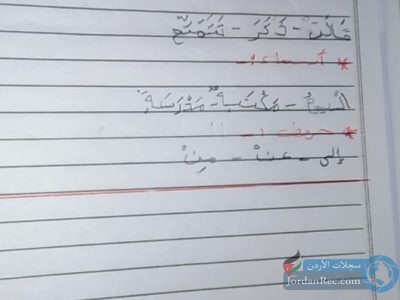 ذَكَرَ - تَتَمَتَّعُ
* أسماء :-
مَكْتَبة - مَدْرَسَةٌ
* حروف :-
إلى - عَنْ - مِنْ
سجلات الأردن
JordanRec.com